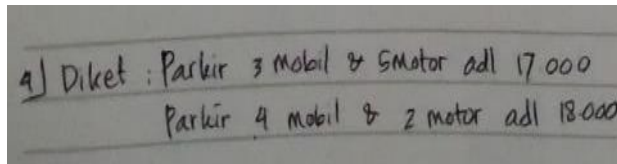 4) Diket : Parkir 3 mobil & 5 Motor adl 17 000
Parkir 4 mobil & 2 motor adl 18.000